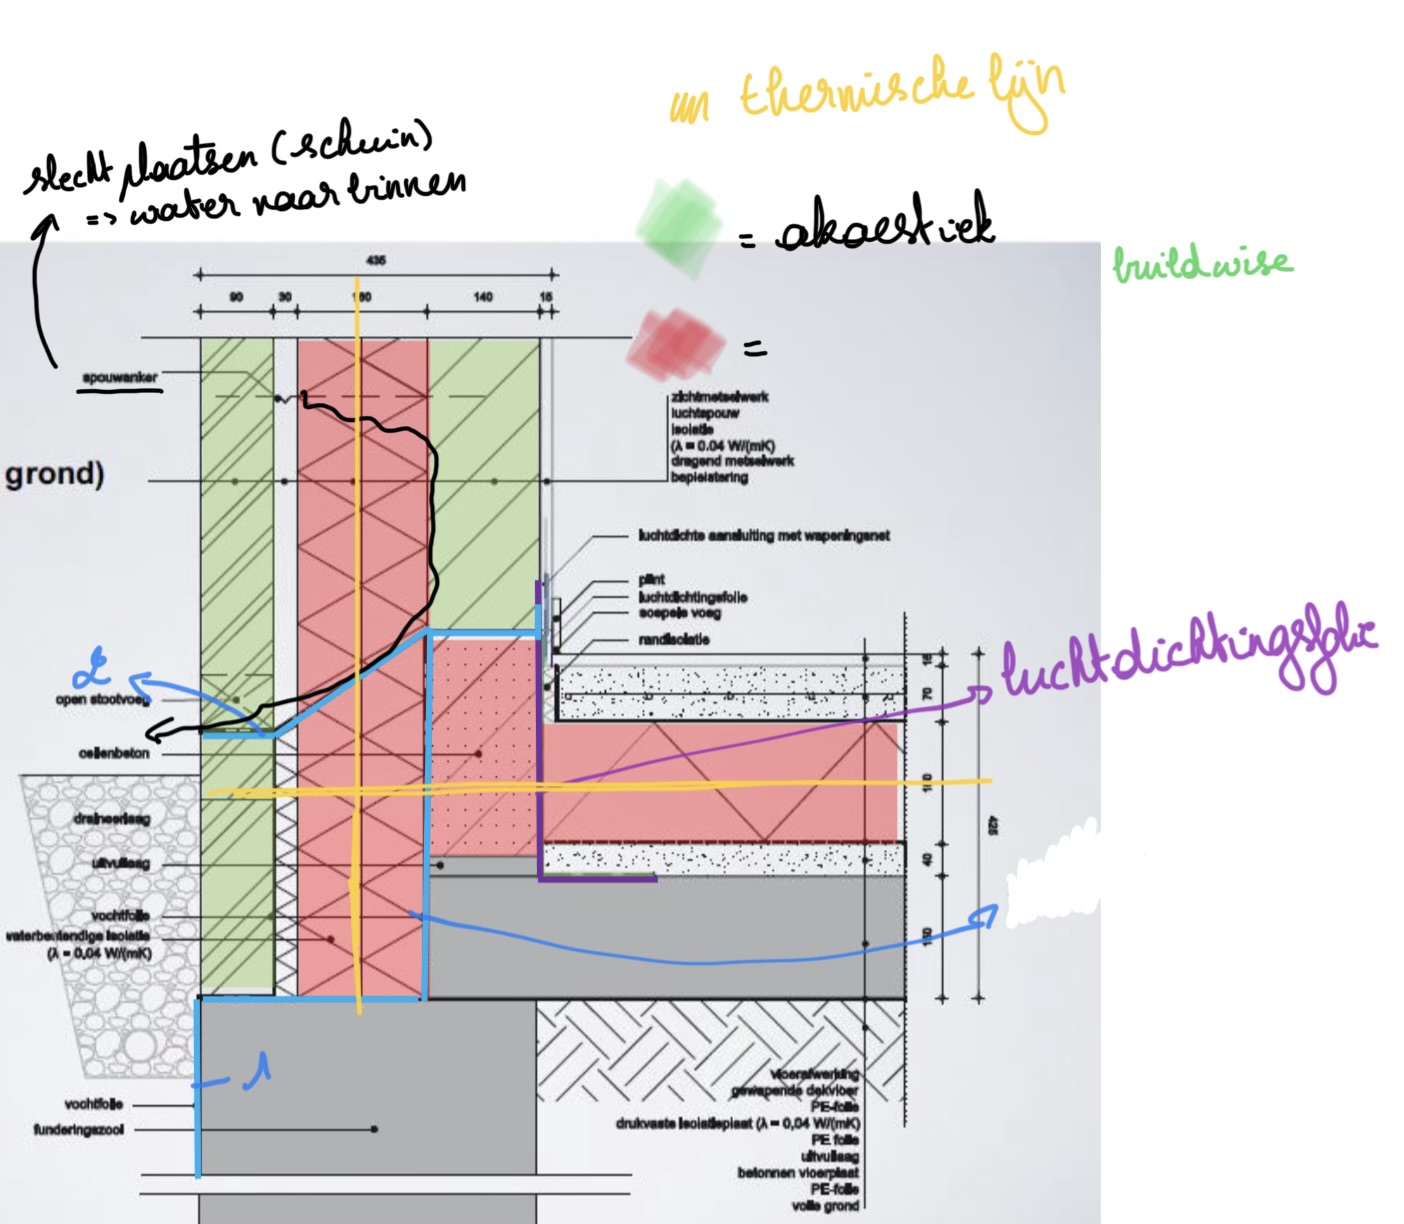 un thermische lijn
slecht plaatsen (schuin)
=> water naar binnen
= akoestiek
buildwise
=
435
90 30 140 15
spouwanker
zichtmetselwerk
luchtspouw
isolatie
(λ = 0.04 W/(mK)
dragend metselwerk
bepleistering
grond)
luchtdichte aansluiting met wapeningsnet
plint
luchtdichtingsfolie
soepele voeg
randisolatie
luchtdichtingsfolie
2
open stootvoeg
cellenbeton
draineerlaag
uitvullaag
vochtfolie
waterbestendige isolatie
(λ = 0,04 W/(mK)
15
70
40
425
1
vochtfolie
funderingszool
vloerafwerking
gewapende dekvloer
PE-folie
drukvaste isolatieplaat (λ = 0,04 W/(mK)
PE folie
uitvullaag
betonnen vloerplaat
PE-folie
volle grond